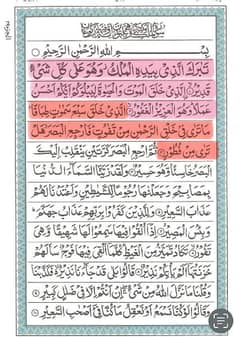 بِسْمِ اللهِ الرَّحْمٰنِ الرَّحِيْمِ
تَبٰرَكَ الَّذِيْ بِيَدِهِ الْمُلْكُ وَهُوَ عَلٰى كُلِّ شَيْءٍ
قَدِيْرُ ۙ الَّذِيْ خَلَقَ الْمَوْتَ وَالْحَيٰوةَ لِيَبْلُوَكُمْ اَيُّكُمْ اَحْسَنُ
عَمَلًا ؕ وَهُوَ الْعَزِيْزُ الْغَفُوْرُ ۙ الَّذِيْ خَلَقَ سَبْعَ سَمٰوٰتٍ طِبَاقًا ؕ
مَا تَرٰى فِيْ خَلْقِ الرَّحْمٰنِ مِنْ تَفٰوُتٍ ؕ فَارْجِعِ الْبَصَرَ ۙ هَلْ
تَرٰى مِنْ فُطُوْرٍ ثُمَّ ارْجِعِ الْبَصَرَ كَرَّتَيْنِ يَنْقَلِبْ اِلَيْكَ
الْبَصَرُ خَاسِئًا وَّهُوَ حَسِيْرٌ وَلَقَدْ زَيَّنَّا السَّمَآءَ الدُّنْيَا
بِمَصَابِيْحَ وَجَعَلْنٰهَا رُجُوْمًا لِّلشَّيٰطِيْنِ وَاَعْتَدْنَا لَهُمْ
عَذَابَ السَّعِيْرِ وَلِلَّذِيْنَ كَفَرُوْا بِرَبِّهِمْ عَذَابُ جَهَنَّمَ ؕ
وَبِئْسَ الْمَصِيْرُ اِذَآ اُلْقُوْا فِيْهَا سَمِعُوْا لَهَا شَهِيْقًا وَّهِيَ
تَفُوْرُ ۙ تَكَادُ تَمَيَّزُ مِنَ الْغَيْظِ ؕ كُلَّمَآ اُلْقِيَ فِيْهَا فَوْجٌ سَاَلَهُمْ
خَزَنَتُهَآ اَلَمْ يَاْتِكُمْ نَذِيْرٌ قَالُوْا بَلٰى قَدْ جَآءَنَا نَذِيْرٌ ۙ فَكَذَّبْنَا
وَقُلْنَا مَا نَزَّلَ اللهُ مِنْ شَيْءٍ ۚ اِنْ اَنْتُمْ اِلَّا فِيْ ضَلٰلٍ كَبِيْرٍ
وَقَالُوْا لَوْ كُنَّا نَسْمَعُ اَوْ نَعْقِلُ مَا كُنَّا فِيْٓ اَصْحٰبِ السَّعِيْرِ